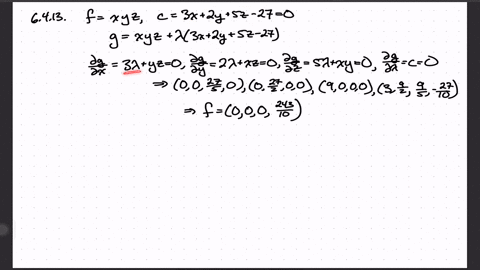 6.4.13. f = xyz, c = 3x+2y+5z-27=0
g = xyz + λ(3x+2y+5z-27)
∂g/∂x = 3λ+yz=0, ∂g/∂y = 2λ+xz=0, ∂g/∂z = 5λ+xy=0, ∂g/∂λ = c = 0
⇒ (0,0,27/5,0), (0,27/2,0,0), (9,0,0,0), (3,9/2,9/5,-27/10)
⇒ f = (0,0,0,243/10)